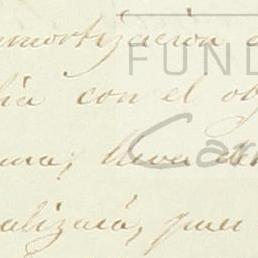 amortización
FUND
lia con el ob
Car
ma; lleva de
alizará, pues